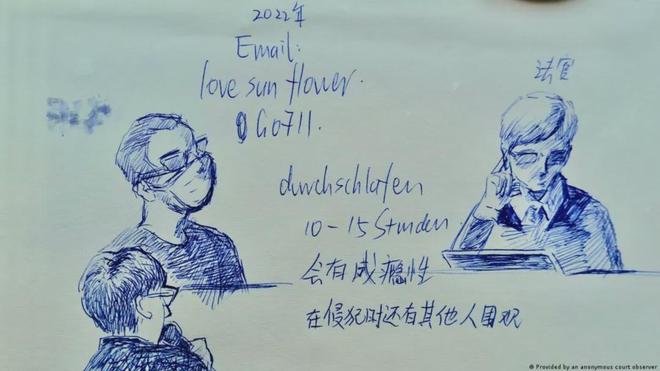 2022年
Email:
love sun flower.
G0711.
法官
durchschlafen
10-15 Stunden
会有成瘾性
在侵犯时还有其他人围观
Provided by an anonymous court observer